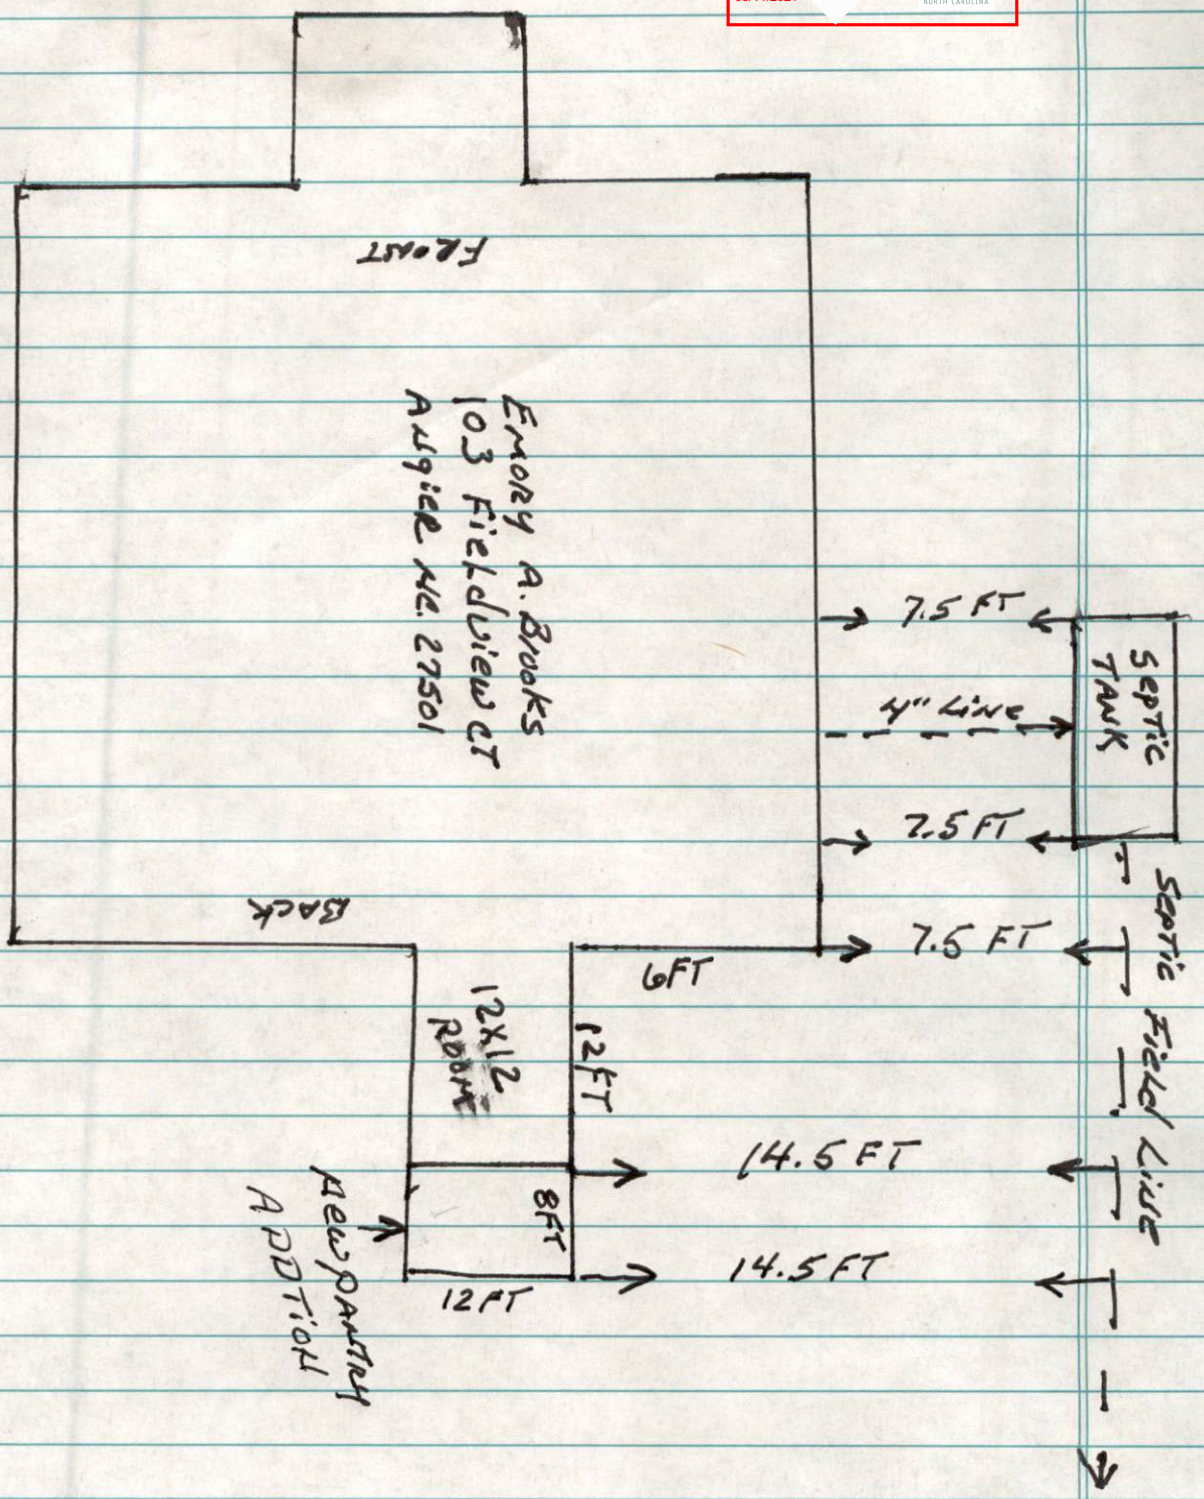 NORTH CAROLINA
FRONT
Emory A. Brooks
103 Fieldview CT
Angier NC. 27501
7.5 FT
4" Line
7.5 FT
SepTic
TANK
BACK
7.5 FT
6FT
Septic Field Line
12X12
ROOM
12FT
14.5 FT
8FT
14.5 FT
12FT
New PANTRY
ADDTION